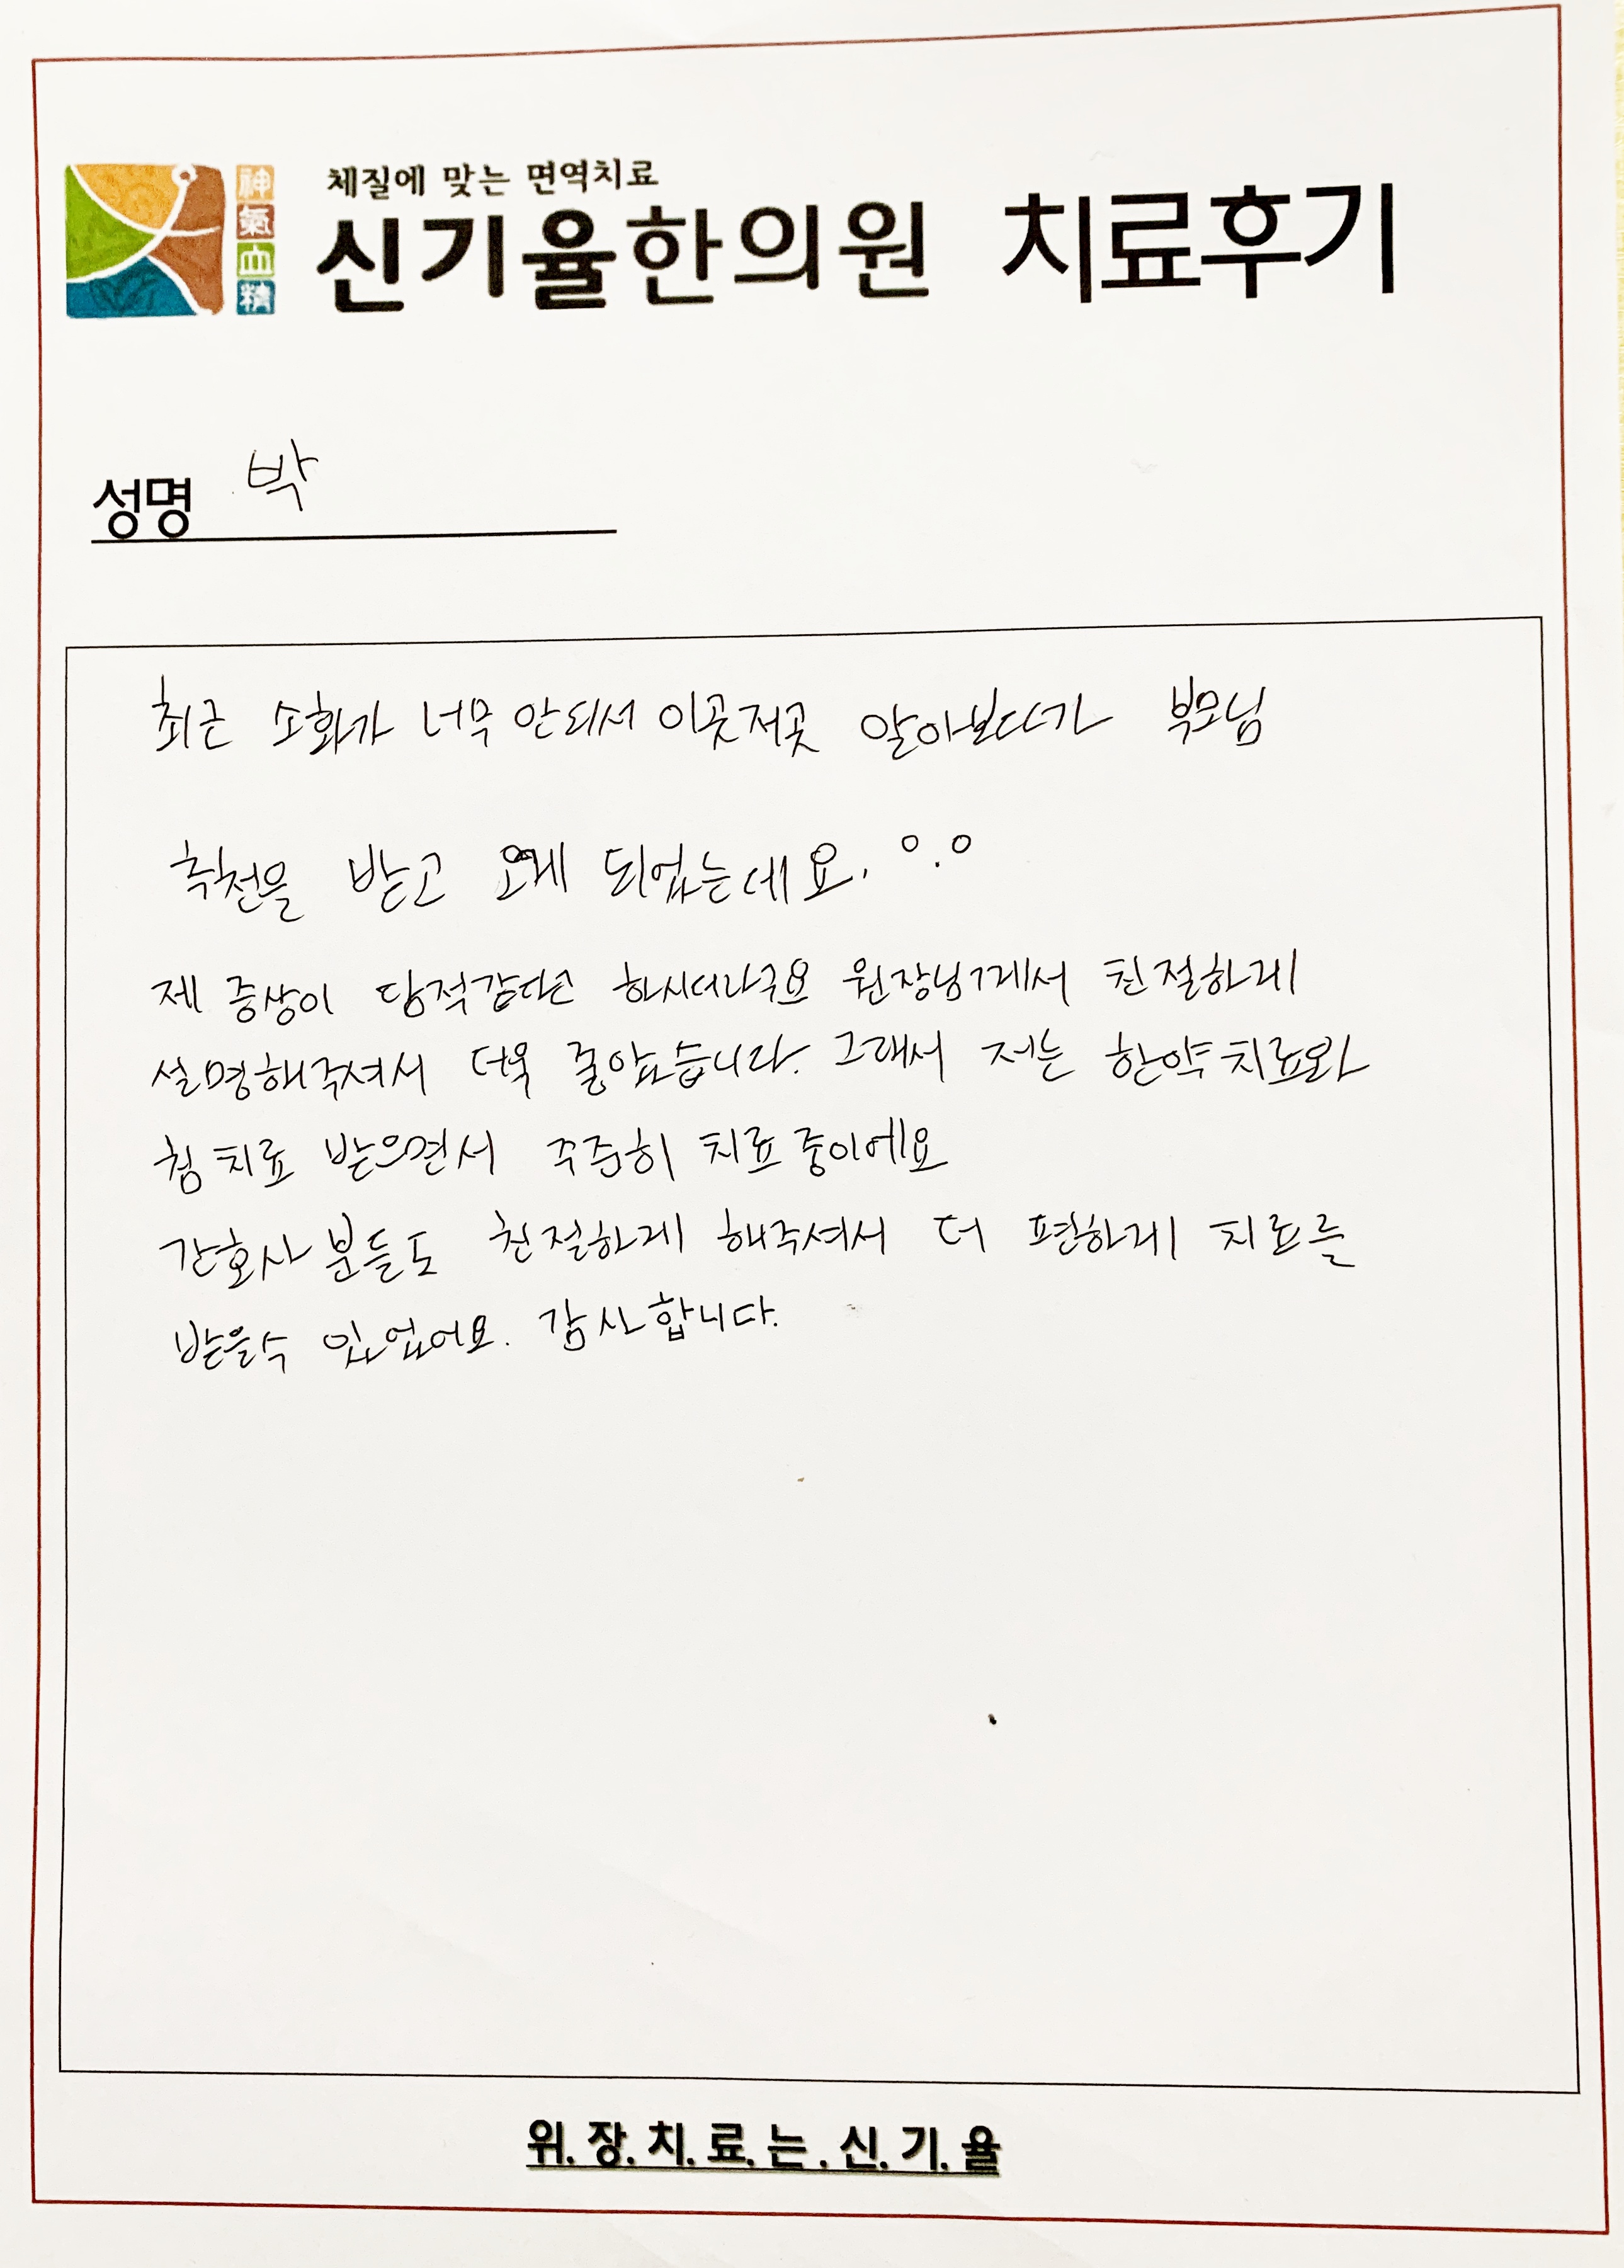 체질에 맞는 면역치료
신기율한의원 치료후기
神
氣
血
精
성명 박
최근 소화가 너무 안되서 이곳저곳 알아보다가 부모님
추천을 받고 오게 되었는데요. ㅇ.ㅇ
제 증상이 담적같다고 하시더라구요 원장님께서 친절하게
설명해주셔서 더욱 좋았습니다. 그래서 저는 한약치료와
침치료 받으면서 꾸준히 치료중이에요
간호사분들도 친절하게 해주셔서 더 편하게 치료를
받을수 있었어요. 감사합니다.
위.장.치.료.는.신.기.율